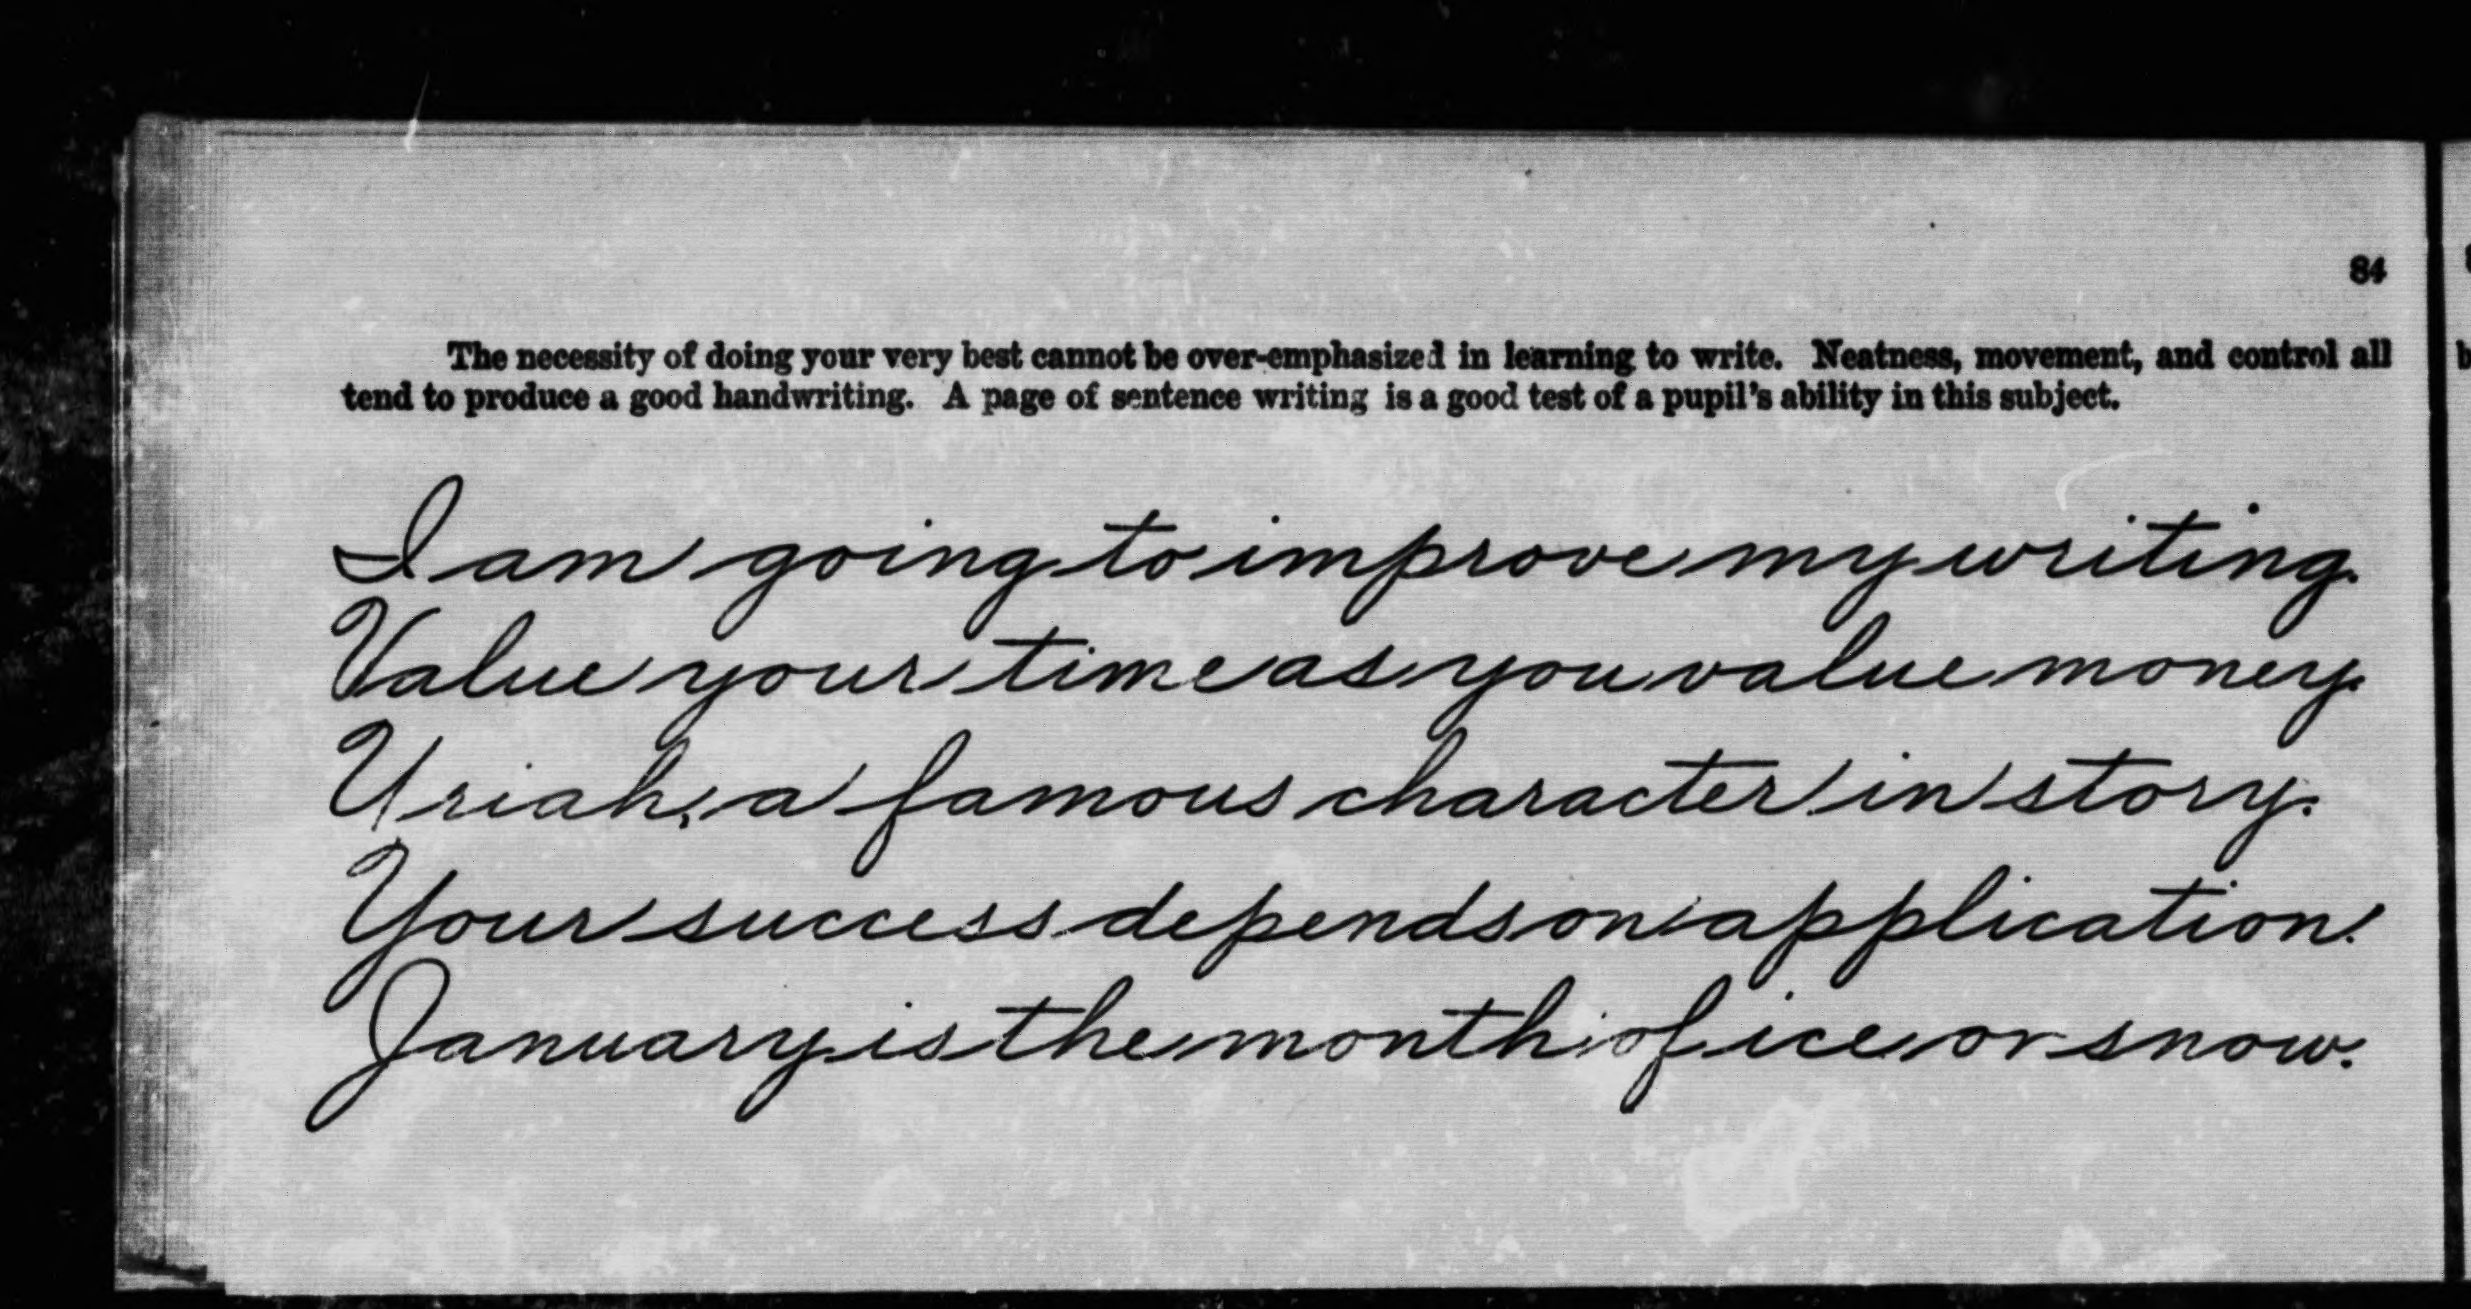 84
The necessity of doing your very best cannot be over-emphasized in learning to write. Neatness, movement, and control all
tend to produce a good handwriting. A page of sentence writing is a good test of a pupil's ability in this subject.
I am going to improve my writing.
Value your time as you value money.
Uriah, a famous character in story.
Your success depends on application.
January is the month of ice or snow.